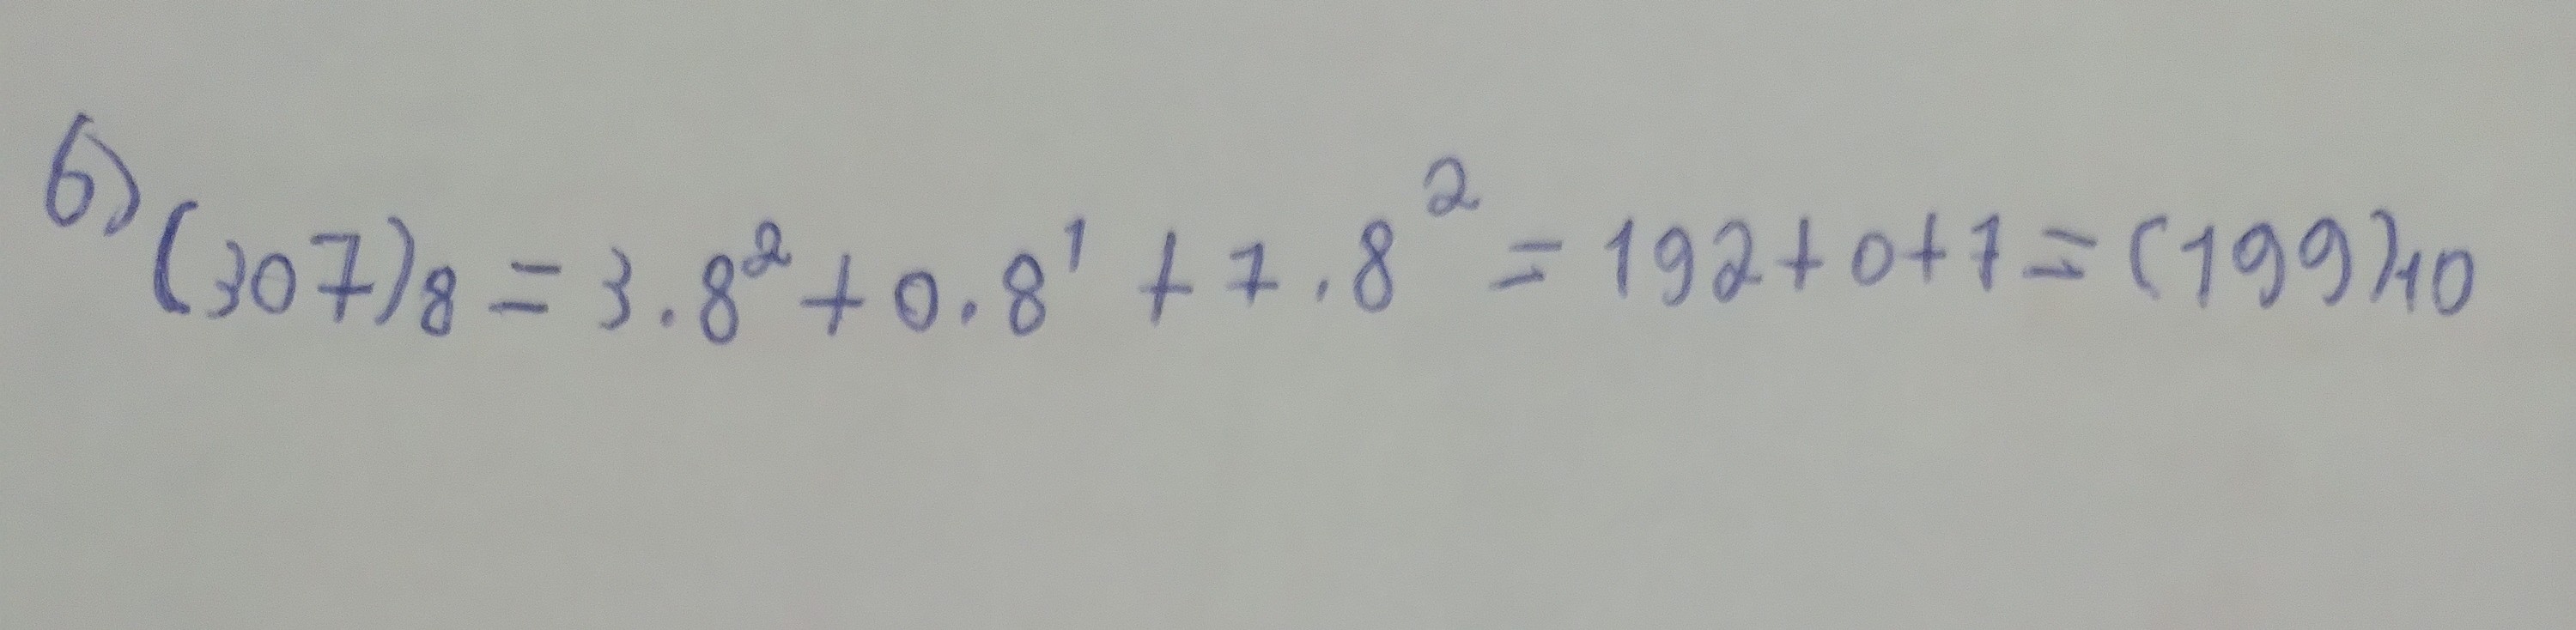 б) (307)₈ = 3.8² + 0.8¹ + 7.8² = 192 + 0 + 7 = (199)₁₀